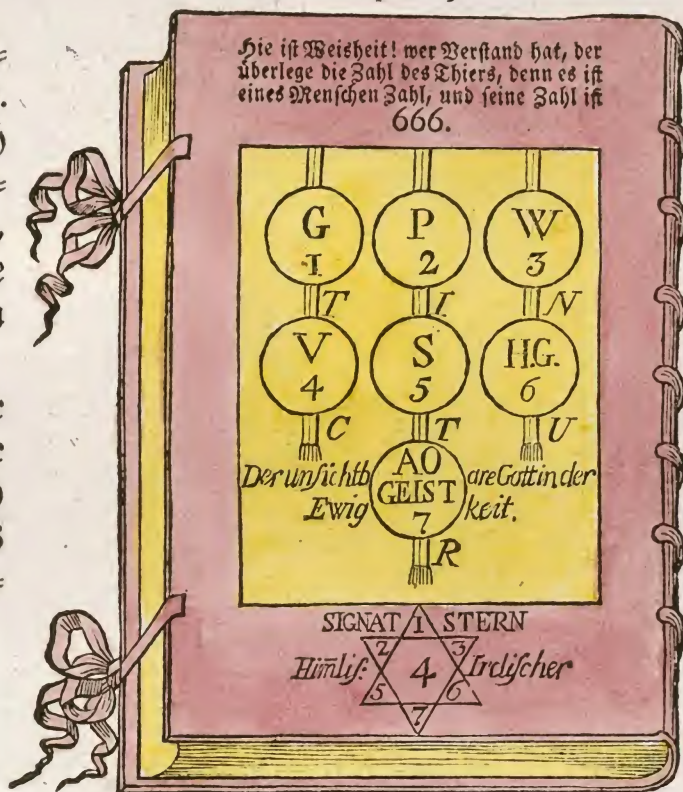 Hie ist Weisheit! wer Verstand hat, der
überlege die Zahl des Thiers, denn es ist
eines Menschen Zahl, und seine Zahl ist
666.
G P W
1 2 3
T I N
V S H.G.
4 5 6
C T U
Der unsichtb AO are Gott in der
Ewig GEIST keit.
7
R
SIGNAT 1 STERN
2 3
Him̄lis. 4 Irdischer
5 6
7